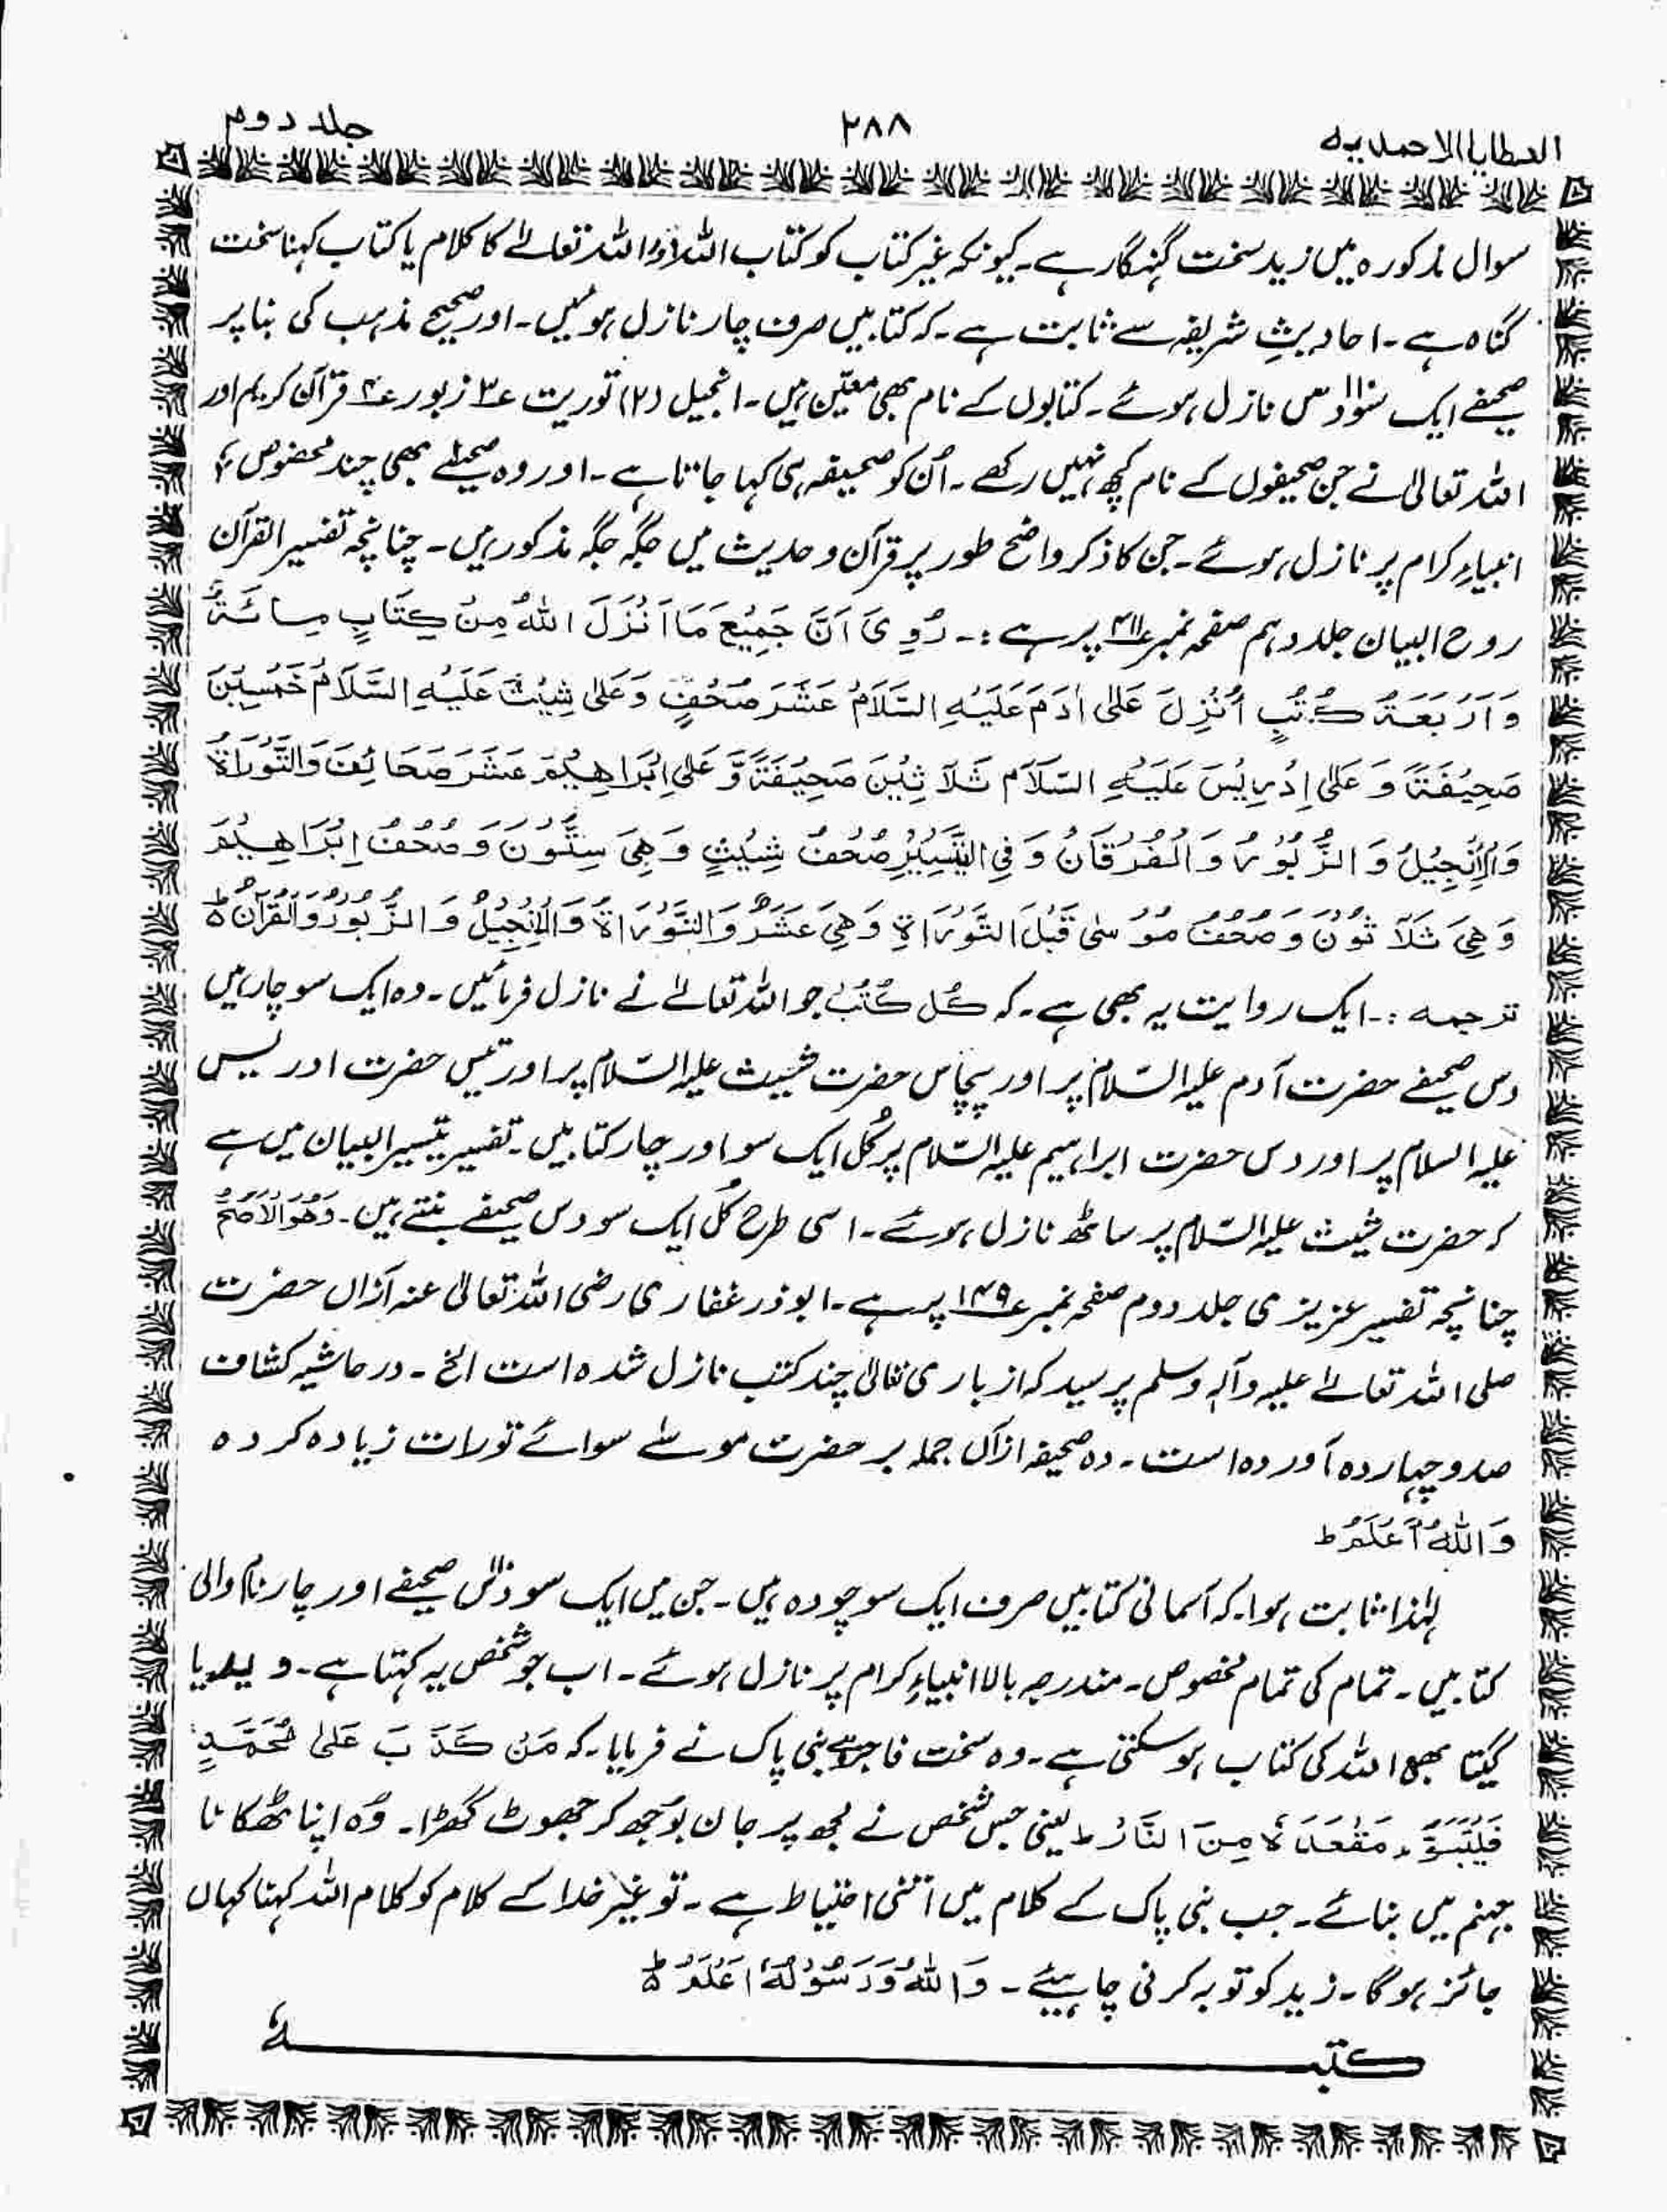 العطایا الاحمدیہ
۲۸۸
جلد دوم
سوال مذکورہ میں زید سخت گنہگار ہے۔ کیونکہ غیر کتاب کو کتاب اللہ اور اللہ تعالےٰ کا کلام یا کتاب کہنا سخت
گناہ ہے۔ احادیثِ شریفہ سے ثابت ہے۔ کہ کتابیں صرف چار نازل ہوئیں۔ اور صحیح مذہب کی بنا پر
صحیفے ایک سو دس نازل ہوئے۔ کتابوں کے نام بھی معیّن ہیں۔ انجیل (۲) توریت ۳؎ زبور ۴؎ قرآن کریم اور
اللہ تعالیٰ نے جن صحیفوں کے نام کچھ نہیں رکھے۔ اُن کو صحیفہ ہی کہا جاتا ہے۔ اور وہ صحیفے بھی چند مخصوص
انبیاءِ کرام پر نازل ہوئے۔ جن کا ذکر واضح طور پر قرآن و حدیث میں جگہ جگہ مذکور ہیں۔ چنانچہ تفسیر القرآن
روح البیان جلد دہم صفحہ نمبر ۴۱۱ پر ہے :۔ رُوِیَ اَنَّ جَمِیْعَ مَا اَنْزَلَ اللہُ مِنْ کِتَابٍ مِائَۃٌ
وَ اَرْبَعَۃُ کُتُبٍ اُنْزِلَ عَلٰی اٰدَمَ عَلَیْہِ السَّلَامُ عَشَرَ صُحُفٍ وَ عَلٰی شِیْثَ عَلَیْہِ السَّلَامُ خَمْسِیْنَ
صَحِیْفَۃً وَ عَلٰی اِدْرِیْسَ عَلَیْہِ السَّلَامَ ثَلَاثِیْنَ صَحِیْفَۃً وَّ عَلٰی اِبْرَاھِیْمَ عَشَرَ صَحَائِفَ وَالتَّوْرَاۃُ
وَالْاِنْجِیْلُ وَ الزَّبُوْرُ وَ الْفُرْقَانُ وَ فِی التَّیْسِیْرِ صُحُفُ شِیْثٍ وَ ھِیَ سِتُّوْنَ وَ صُحُفُ اِبْرَاھِیْمَ
وَ ھِیَ ثَلَاثُوْنَ وَ صُحُفُ مُوْسٰی قَبْلَ التَّوْرَاۃِ وَ ھِیَ عَشَرٌ وَ التَّوْرَاۃُ وَ الْاِنْجِیْلُ وَ الزَّبُوْرُ وَالْقُرْآنُ ط
ترجمہ :۔ ایک روایت یہ بھی ہے۔ کہ کُل کُتُبْ جو اللہ تعالےٰ نے نازل فرمائیں۔ وہ ایک سو چار ہیں
دس صحیفے حضرت آدم علیہ السّلام پر اور پچاس حضرت شیث علیہ السّلام پر اور تیس حضرت ادریس
علیہ السلام پر اور دس حضرت ابراہیم علیہ السّلام پر کُل ایک سو اور چار کتابیں۔ تفسیر تیسیر البیان میں ہے
کہ حضرت شیث علیہ السّلام پر ساٹھ نازل ہوئے۔ اسی طرح کُل ایک سو دس صحیفے بنتے ہیں۔ وَھُوَ الْاَصَحُّ
چنانچہ تفسیر عزیزی جلد دوم صفحہ نمبر ۱۴۹ پر ہے۔ ابوذر غفاری رضی اللہ تعالیٰ عنہ ازاں حضرت
صلی اللہ تعالےٰ علیہ وآلہٖ وسلم پرسید کہ از باری تعالیٰ چند کتب نازل شدہ است الخ۔ در حاشیہ کشاف
صد و چہاردہ آوردہ است۔ دہ صحیفہ ازآں جملہ بر حضرت موسےٰ سوائے تورات زیادہ کردہ
وَاللہُ اَعْلَمُ ط
لہٰذا ثابت ہوا۔ کہ آسمانی کتابیں صرف ایک سو چودہ ہیں۔ جن میں ایک سو دس صحیفے اور چار نام والی
کتابیں۔ تمام کی تمام مخصوص۔ مندرجہ بالا انبیاءِ کرام پر نازل ہوئے۔ اب جو شخص یہ کہتا ہے۔ وید یا
گیتا بھی اللہ کی کتاب ہو سکتی ہے۔ وہ سخت فاجر ہے نبی پاک نے فرمایا۔ کہ مَنْ کَذَّبَ عَلٰی مُحَمَّدٍ
فَلْیَتَبَوَّءْ مَقْعَدَہٗ مِنَ النَّارُ ط یعنی جس شخص نے مجھ پر جان بُوجھ کر جھوٹ گھڑا۔ وُہ اپنا ٹھکانا
جہنم میں بنائے۔ جب نبی پاک کے کلام میں اتنی احتیاط ہے۔ تو غیرِ خدا کے کلام کو کلام اللہ کہنا کہاں
جائز ہوگا۔ زید کو توبہ کرنی چاہیئے۔ وَاللہُ وَرَسُوْلُہٗ اَعْلَمُ ط
کتبـــــــہٗ